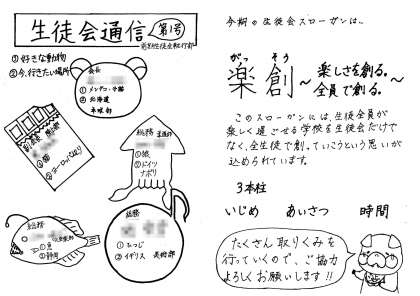 生徒会通信
第1号
①好きな動物
②今、行きたい場所
会長
①メンダコ・子猫
②北海道
卓球部
総務
①猿
②ドイツ
ナポリ
②ヨーロッパなどり
総務
①魚
②静岡
総務
①ひつじ
②イギリス 美術部
今期の生徒会スローガンは…
がっ そう
楽創
～楽しさを創る。
全員で創る。～
このスローガンには、生徒全員が
楽しく過ごせる学校を生徒会だけで
なく、全生徒で創っていこうという思いが
込められています。
3本柱
いじめ あいさつ 時間
たくさん取りくみを
行っていくので、ご協力
よろしくお願いします!!